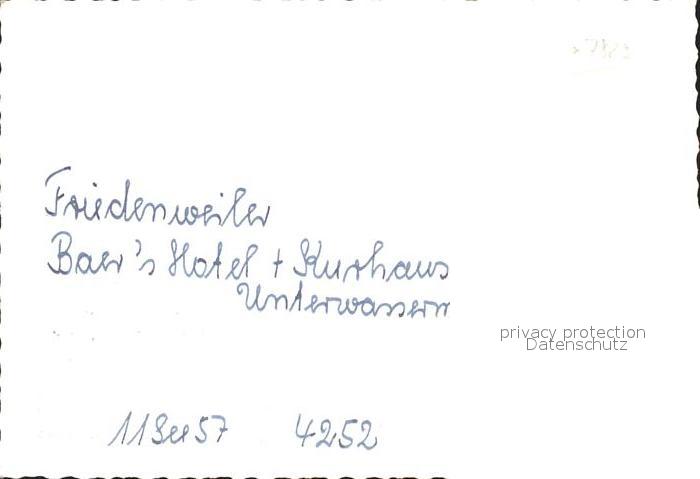 Friedenweiler
Baer's Hotel + Kurhaus
Unterwassern
privacy protection
Datenschutz
4252